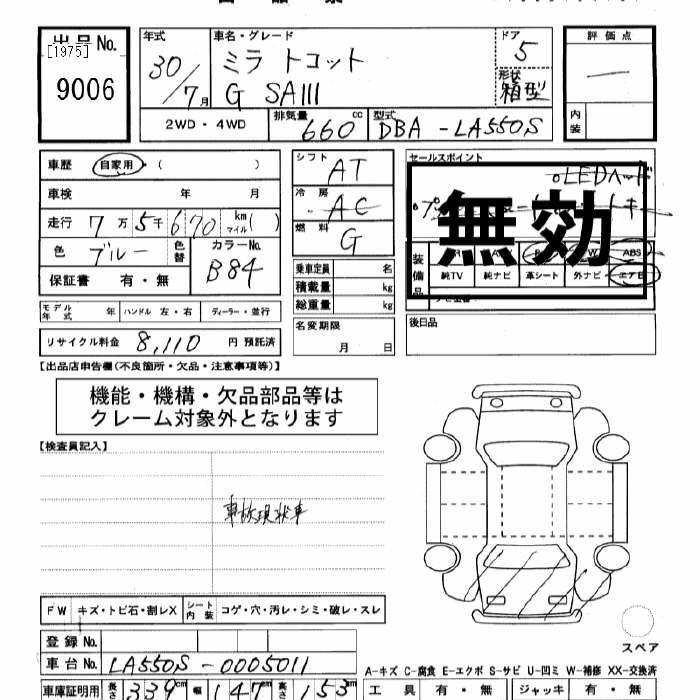 出品 No.
[1975]
9006
年式
30/7月
車名・グレード
ミラ トコット
G SAIII
ドア
5
形状
箱型
評価点
一
内装
2WD・4WD
排気量
660 cc
型式
DBA - LA550S
車歴 自家用・( )
車検 年 月
走行 7万5千670 km マイル( )
色 ブルー
色替
カラーNo.
B84
保証書 有・無
シフト AT
冷房 AC
燃料 G
乗車定員 名
積載量 kg
総重量 kg
セールスポイント
LEDヘッド
無効
装備品
ABS
純TV 純ナビ 革シート 外ナビ エアB
モデル年式 年
ハンドル 左・右
ディーラー・並行
リサイクル料金 8,110 円 預託済
名変期限
月 日
後日品
【出品店申告欄(不良箇所・欠品・注意事項等)】
機能・機構・欠品部品等は
クレーム対象外となります
【検査員記入】
車検現状車
FW キズ・トビ石・割レX
シート内装 コゲ・穴・汚レ・シミ・破レ・スレ
スペア
登録 No.
車台 No. LA550S-0005011
車庫証明用 長さ 339cm 幅 147cm 高さ 153cm
A-キズ C-腐食 E-エクボ S-サビ U-凹ミ W-補修 XX-交換済
工具 有・無 ジャッキ 有・無